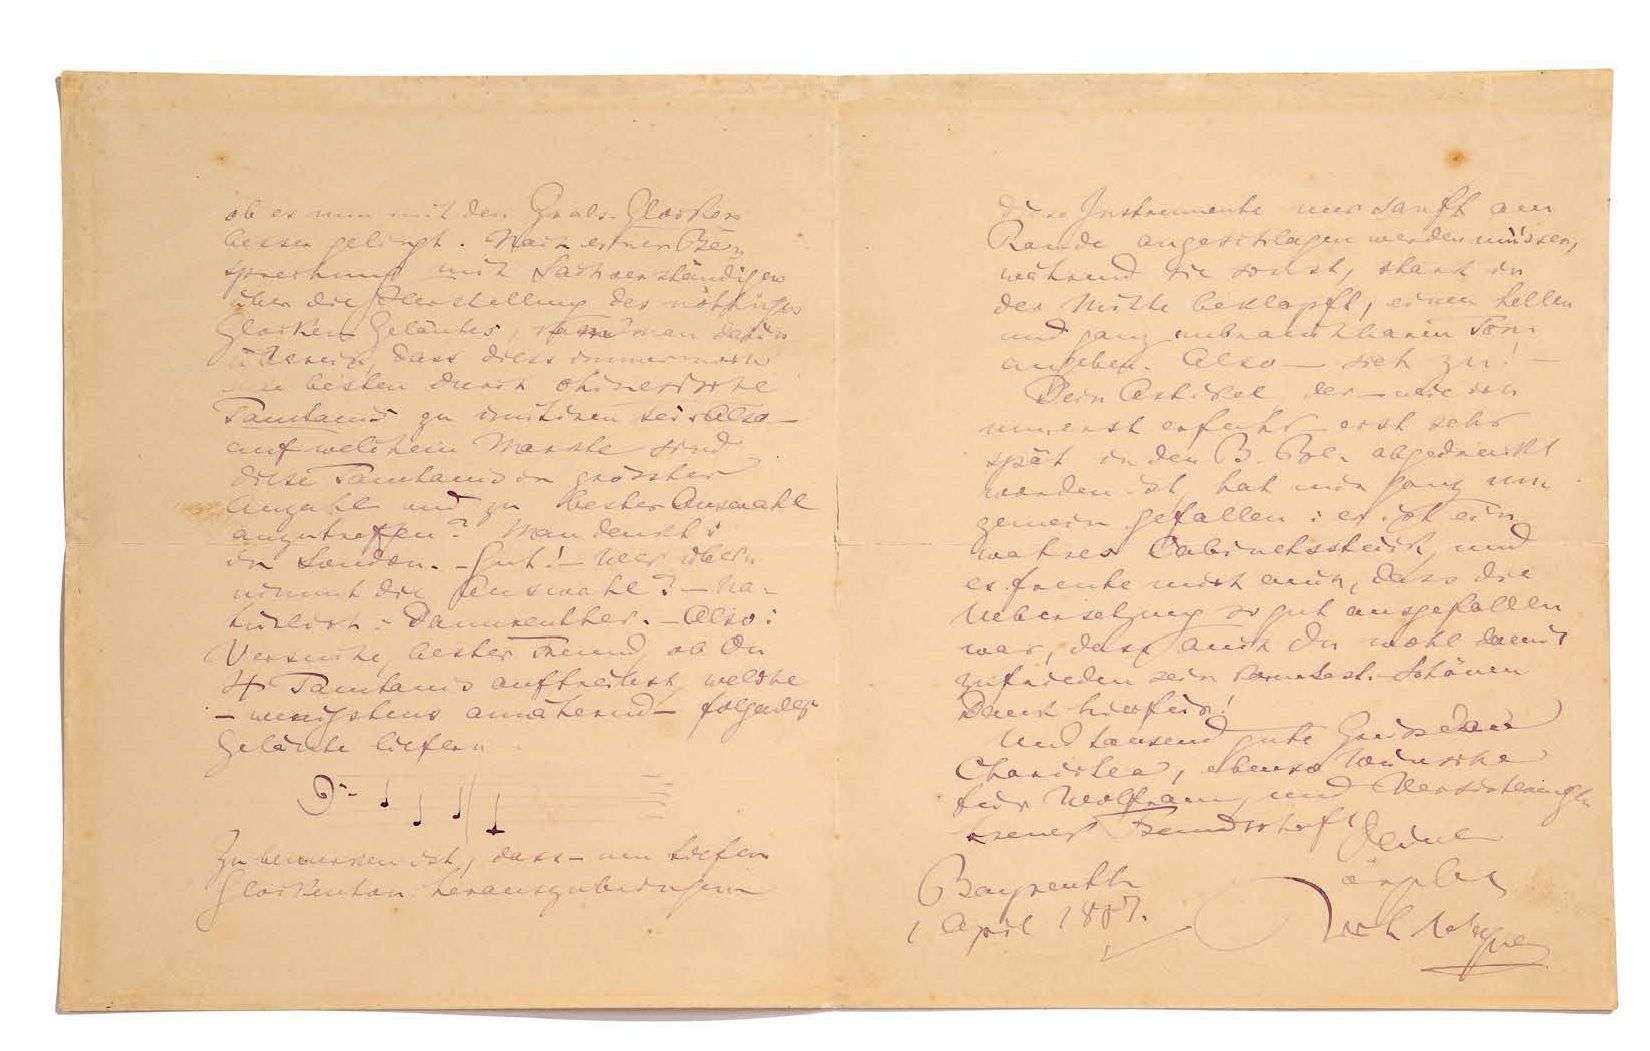 ob es nun mit den Grals-Glocken
besser gelingt. Nach einer Be-
sprechung mit Sachverständigen
über die Herstellung des nöthigen
Glocken-Geläutes, kam man darin
überein, dass diess immer noch
am besten durch chinesische
Tamtams zu imitiren sei. Also —
auf welchem Markte sind
diese Tamtams in grösster
Anzahl und zu bester Auswahl
anzutreffen? Man denkt:
in London. – Gut! – Wer über-
nimmt die Auswahl? – Na-
türlich: Dannreuther. – Also:
Versuche, bester Freund, ob Du
4 Tamtams auftreibst, welche
– wenigstens annähernd – folgendes
Geläute liefern
Zu bemerken ist, dass – um tiefen
Glockenton herauszubringen
diese Instrumente nur sanft am
Rande angeschlagen werden müssen,
während sie sonst, stark in
der Mitte beklopft, einen hellen
und ganz unbrauchbaren Ton
angeben. Also – sieh zu! –
Dein Artikel, der – wie ich
nun erst erfuhr – erst sehr
spät in den B. Bl. abgedruckt
worden ist, hat mir ganz un-
gemein gefallen: er ist ein
wahres Cabinetsstück, und
es freute mich auch, dass die
Uebersetzung so gut ausgefallen
war, dass auch Du wohl damit
zufrieden sein konntest. – Schönen
Dank hierfür!
Und tausend gute Grüsse an
Chariclea, ebenso Wünsche
für Wolfram, und Versicherungen
treuer Freundschaft
Deines
Bayreuth
1 April 1881.
Rich Wagner